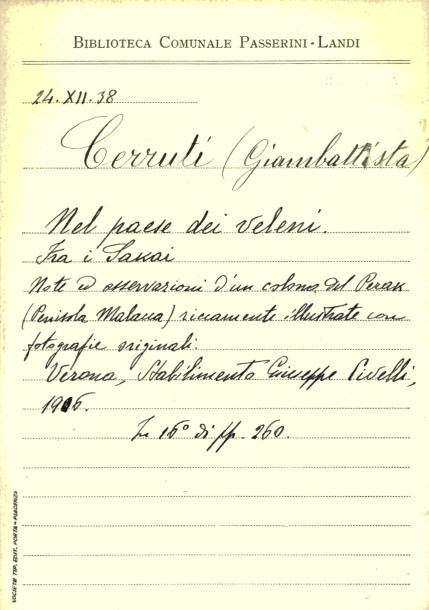 BIBLIOTECA COMUNALE PASSERINI-LANDI
24.XII.38
Cerruti (Giambattista)
Nel paese dei veleni.
Fra i Sakai
Note ed osservazioni d'un colono del Perak
(Penisola Malacca) riccamente illustrate con
fotografie originali.
Verona, Stabilimento Giuseppe Civelli,
1906.
In 16° di pp. 260.
SOCIETÀ TIP. EDIT. PORTA - PIACENZA